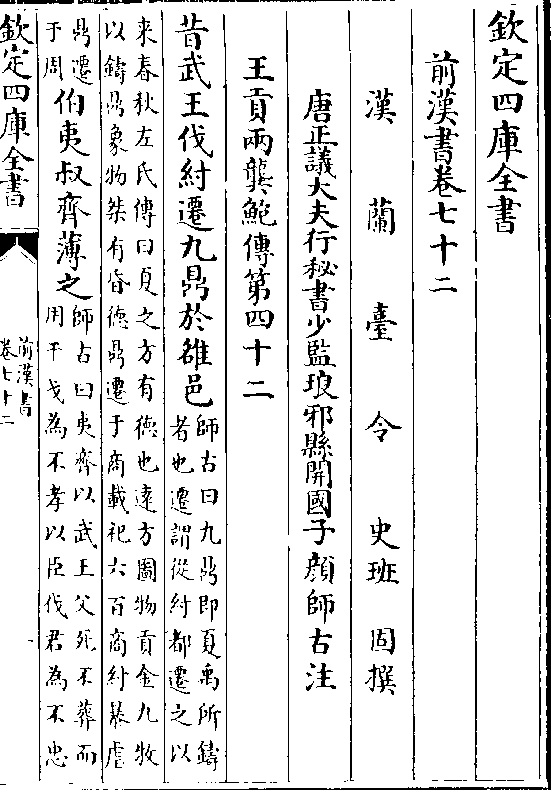 欽定四庫全書
前漢書卷七十二
漢蘭臺令史班固撰
唐正議大夫行秘書少監琅邪縣開國子顔師古注
王貢兩龔鮑傳第四十二
昔武王伐紂遷九鼎於雒邑師古曰九鼎即夏禹所鑄
者也遷謂從紂都遷之以
来春秋左氏傳曰夏之方有徳也逺方圖物貢金九牧
以鑄鼎象物桀有昏徳鼎遷于商載祀六百商紂暴虐
鼎遷
于周
伯夷叔齊薄之師古曰夷齊以武王父死不葬而
用干戈為不孝以臣伐君為不忠
欽定四庫全書
前漢書
卷七十二